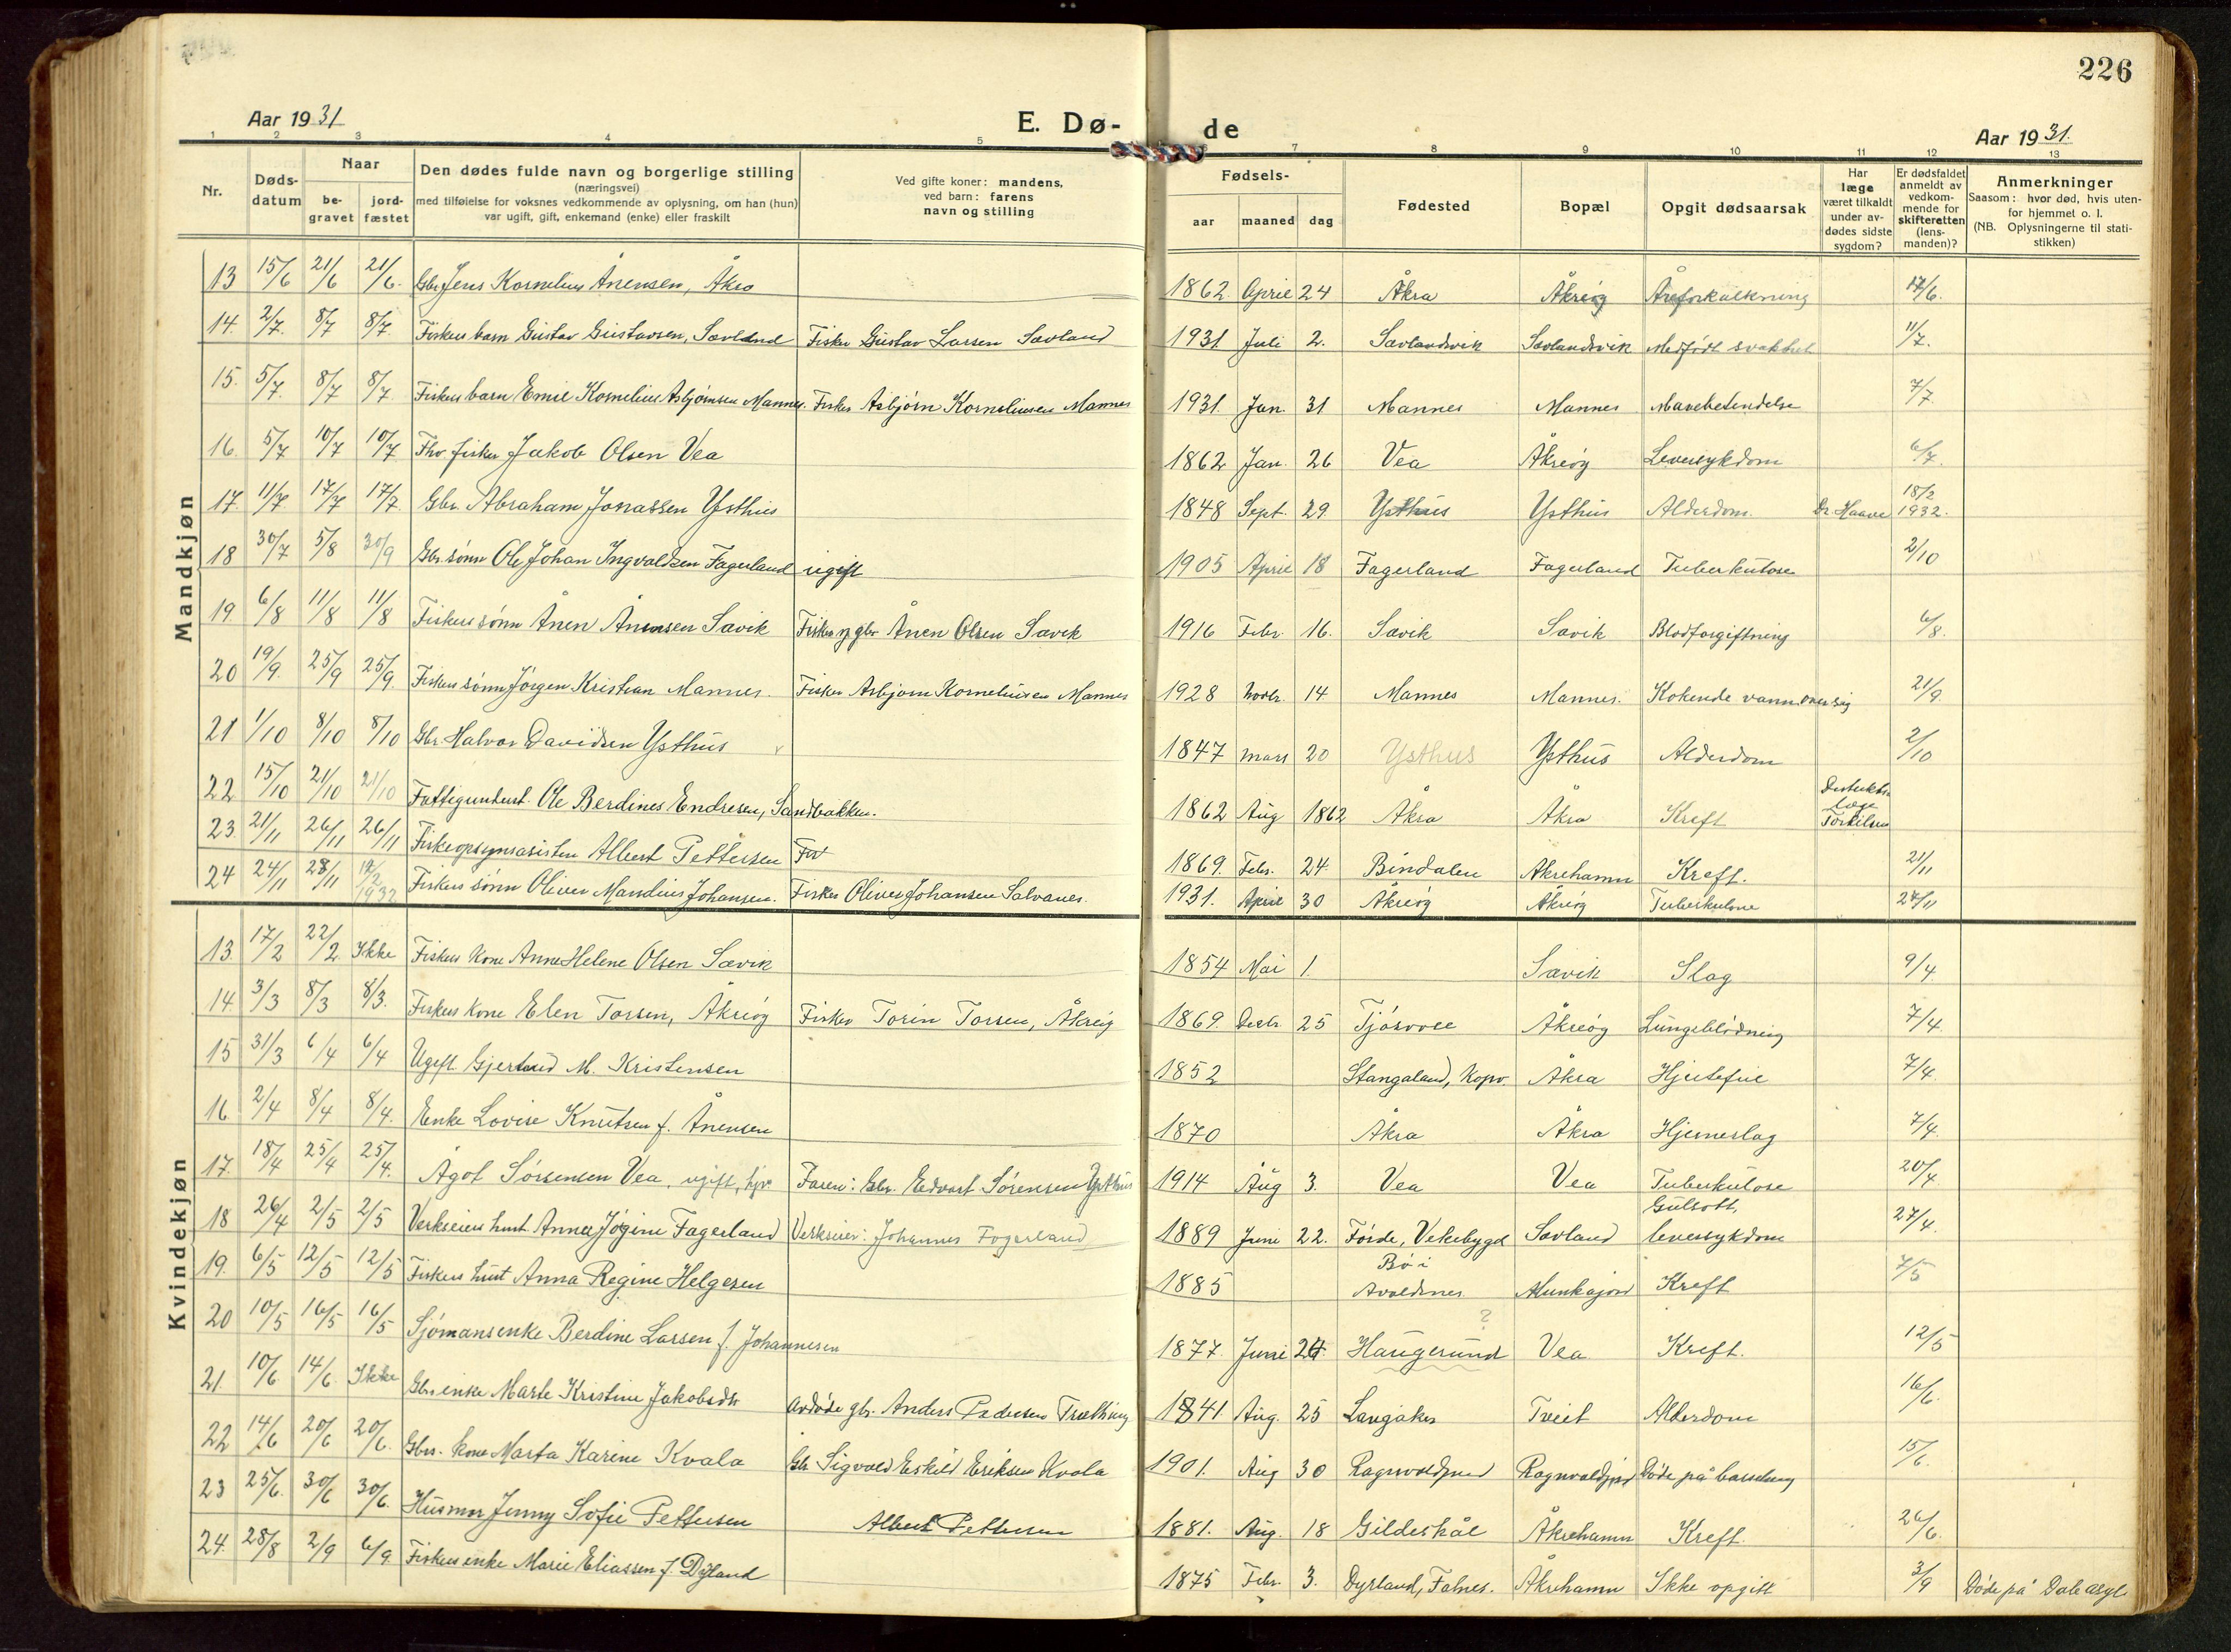 226
Aar 1931
E. Dø-
de
Aar 1931.
1 2 3 4 5 6 7 8 9 10 11 12 13
Nr.
Døds-
datum
Naar
be-
gravet
jord-
fæstet
Den dødes fulde navn og borgerlige stilling
(næringsvei)
med tilføielse for voksnes vedkommende av oplysning, om han (hun)
var ugift, gift, enkemand (enke) eller fraskilt
Ved gifte koner: mandens,
ved barn: farens
navn og stilling
Fødsels-
aar maaned dag
Fødested
Bopæl
Opgit dødsaarsak
Har
læge
været tilkaldt
under av-
dødes sidste
sygdom?
Er dødsfaldet
anmeldt av
vedkom-
mende for
skifteretten
(lens-
manden)?
Anmerkninger
Saasom: hvor død, hvis uten-
for hjemmet o. l.
(NB. Oplysningerne til stati-
stikken)
Mandkjøn
13 15/6 21/6 21/6. Gbr. Jens Kornelius Ånensen, Åkra 1862. April 24 Åkra Åkreøy Åreforkalkning 17/6.
14. 2/7. 8/7 8/7. Fiskers barn Gustav Gustavsen, Sævland Fisker Gustav Larsen Sævland 1931. Juli 2. Sævlandsvik Sævlandsvik Medfødt svakhet 11/7.
15. 5/7. 8/7 8/7. Fiskers barn Emil Kornelius Asbjørnsen Mannes. Fisker Asbjørn Korneliusen Mannes 1931. Jan. 31 Mannes Mannes Mavebetendelse 7/7
16. 5/7 10/7 10/7 Fhv. fisker Jakob Olsen Vea 1862 Jan. 26 Vea Åkreøy Leversykdom 6/7.
17. 11/7 17/7 17/7. Gbr. Abraham Jonassen Ysthus 1848 Sept. 29 Ysthus Ysthus Alderdom. Dr. Haave 18/2 1932.
18 30/7 5/8 30/9 Gbr. sønn Ole Johan Ingvaldsen Fagerland ugift 1905 April 18 Fagerland Fagerland Tuberkulose 2/10
19. 6/8 11/8 11/8 Fiskers sønn Ånen Ånensen Sævik Fisker og gbr Ånen Olsen Sævik 1916 Febr. 16. Sævik Sævik Blodforgiftning 6/8.
20 19/9. 25/9 25/9. Fiskers sønn Jørgen Kristian Mannes. Fisker Asbjørn Korneliusen Mannes 1928 Novbr. 14 Mannes Mannes. Kokende vann over sig 21/9.
21 1/10 8/10 8/10 Gbr. Halvor Davidsen Ysthus 1847 mars 20 Ysthus Ysthus Alderdom 2/10
22 15/10 21/10 21/10 Fattigunderst. Ole Berdines Endresen, Sandbakken. 1862 Aug 1862 Åkra Åkra Kreft Distriktslæge Torkilsen
23. 21/11 26/11 26/11 Fiskeopsynsasisten Albert Pettersen 1869. Febr. 24. Bindalen Åkrehamn Kreft. 21/11
24 24/11 28/11 14/2 1932 Fiskers sønn Oliver Mandius Johansen. Fisker Oliver Johansen Salvanes. 1931. April 30 Åkreøy Åkreøy Tuberkulose 24/11
Kvindekjøn
13. 17/2 22/2. Ikke Fiskers kone Anne Helene Olsen Sævik 1854 Mai 1. Sævik Slag 9/4.
14. 3/3 8/3 8/3. Fiskers kone Elen Torsen, Åkreøy Fisker Torin Torsen, Åkreøy 1869. Desbr. 25 Tjøsvoll Åkreøy Lungeblødning 7/4.
15 31/3 6/4 6/4 Ugift. Gjertrud M. Kristensen 1852 Stangaland, Kopv. Åkra Hjertefeil 7/4.
16 2/4 8/4 8/4. Enke Lovise Knutsen f. Ånensen 1870 Åkra Åkra Hjerneslag 7/4.
17. 18/4 25/4 25/4. Ågot Sørensen Vea, ugift, hjv. Faren: Gbr. Edvart Sørensen Ysthus 1914 Aug 3. Vea Vea Tuberkulose 20/4
18 26/4 2/5 2/5 Verkseiers hust. Anna Jørgine Fagerland Verkseier: Johannes Fagerland 1889 Juni 22. Førde, Vikebygd Sævland Gulsott, leversykdom 27/4.
19. 6/5 12/5 12/5 Fiskers hust Anna Regine Helgesen 1885 Bø i Avaldsnes Munkajord Kreft 7/5
20 10/5 16/5 16/5 Sjømansenke Berdine Larsen f. Johannesen 1877. Juni 24. Haugesund ? Vea Kreft. 12/5
21. 10/6. 14/6. Ikke Gbr. enke Marte Kristine Jakobsdtr avdøde gbr. Anders Pedersen 1841. Aug. 25 Langåker Tveit Alderdom 16/6.
22 14/6 20/6 20/6. Gbrs. kone Marta Karine Kvala Gbr Sigvald Eskild Eriksen Kvala 1901. Aug 30 Ragnvaldjord Ragnvaldjord Døde på barselseng 15/6.
23 25/6. 30/6 30/6. Husmor Jenny Sofie Pettersen Albert Pettersen 1881. Aug. 18 Gildeskål Åkrehamn Kreft. 26/6.
24. 28/8 2/9 6/9 Fiskers enke Marie Eliassen f. Dyrland 1875 Febr. 3. Dyrland, Falnes. Åkrehamn Ikke opgitt 3/9 Døde på Dale asyl